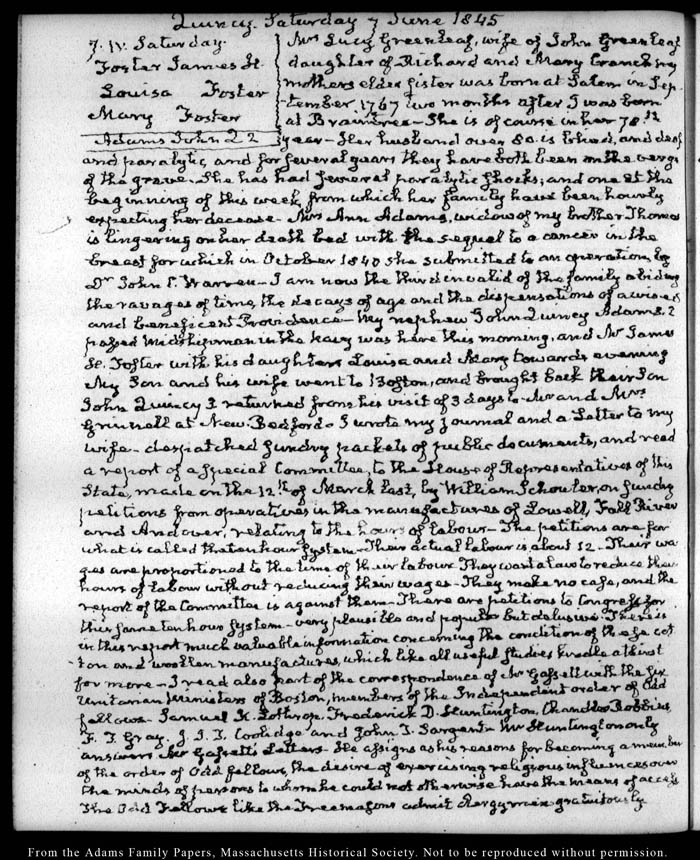 Quincy. Saturday 7 June 1845
7. IV. Saturday.
Foster James H.
Louisa Foster
Mary Foster
Adams John Q 2
Mrs Lucy Greenleaf, wife of John Greenleaf
daughter of Richard and Mary Cranch my
mothers elder sister was born at Salem in Sep-
tember 1767 two months after I was born
at Braintree— She is of course in her 78th
year— Her husband over 80. is blind, and deaf
and paralytic, and for several years they have both been on the verge
of the grave. She has had several paralytic shocks, and one at the
beginning of this week, from which her family have been hourly
expecting her decease— Mrs Ann Adams, widow of my brother Thomas
is lingering on her death bed with the sequel to a cancer in the
breast for which in October 1840 she submitted to an operation, by
Dr John C. Warren— I am now the third invalid of the family abiding
the ravages of time, the decays of age and the dispensations of a wise
and beneficent Providence— My nephew John Quincy Adams. 2
passed Midshipman in the Navy was here this morning, and Mr James
H. Foster with his daughters Louisa and Mary towards evening
My Son and his wife went to Boston, and brought back their Son
John Quincy 3 returned from his visit of 3 days to Mr and Mrs
Grinnell at New Bedford— I wrote my journal and a Letter to my
wife— despatched sundry packets of public documents, and read
a report of a special Committee, to the House of Representatives of this
State, made on the 12th of March last, by William Schouler, on sundry
petitions from operatives in the manufactures of Lowell, Fall River
and Andover, relating to the hours of labour— The petitions are for
what is called the ten hour system— Their actual labour is about 12— Their wa-
ges are proportioned to the time of their labour. They want a law to reduce the
hours of labour without reducing their wages— They make no case, and the
report of the Committee is against them— There are petitions to Congress for
this same ten hour system— very plausible and popular but delusive. There is
in this report much valuable information concerning the condition of these cot-
ton and woollen manufactures, which like all useful studies kindle a thirst
for more— I read also part of the correspondence of Mr Gassett with the six
Unitarian Ministers of Boston, members of the Independent order of Odd
fellows— Samuel K. Lothrop, Frederick D. Huntington, Chandler Robbins,
F. T. Gray, J. I. T. Coolidge and John T. Sargent— Mr Huntington only
answers Mr Gassetts Letters— He assigns as his reasons for becoming a member
of the order of Odd fellows, the desire of exercising religious influences over
the minds of persons to whom he could not otherwise have the means of access
The Odd Fellows like the Freemasons admit clergymen gratuitously
From the Adams Family Papers, Massachusetts Historical Society. Not to be reproduced without permission.